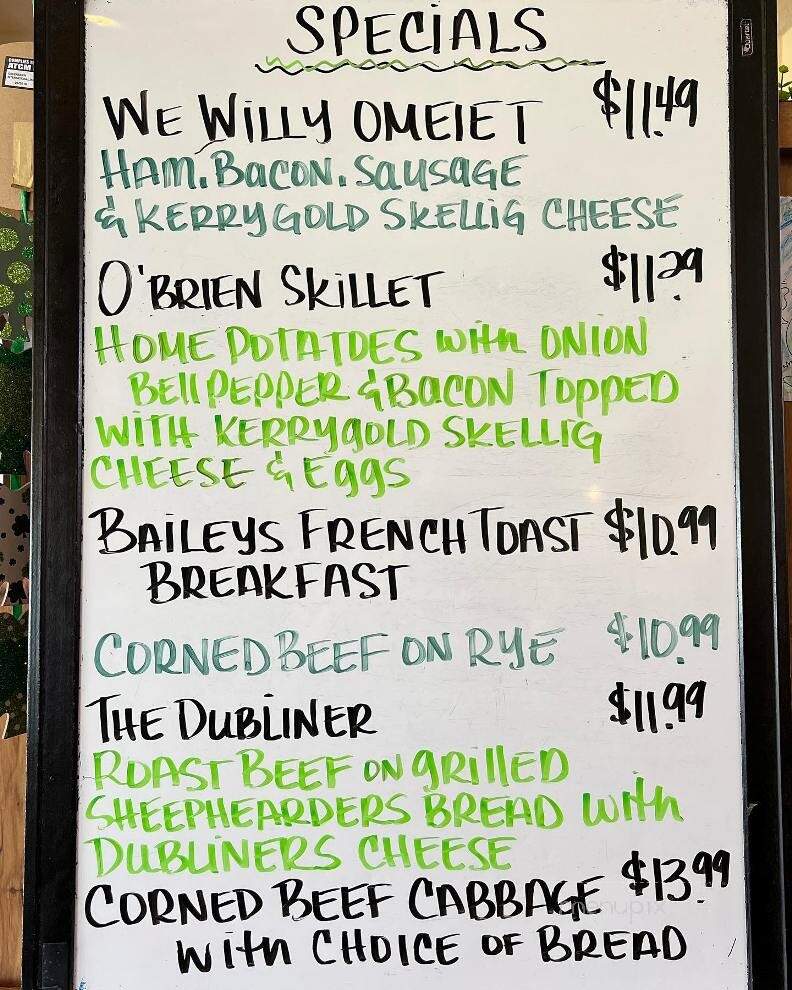 SPECIALS
WE WILLY OMElET $11.49
HAM. BACON. SAUSAGE
& KERRYGOLD SKELLIG CHEESE
O'BRIEN SKILLET $11.29
HOME POTATOES with ONION
BELL PEPPER & BACON TOPPED
WITH KERRYGOLD SKELLIG
CHEESE & EGGS
BAILEYS FRENCH TOAST $10.99
BREAKFAST
CORNED BEEF ON RYE $10.99
THE DUBLINER $11.99
ROAST BEEF ON GRILLED
SHEEPHEARDERS BREAD with
DUBLINERS CHEESE
CORNED BEEF CABBAGE $13.99
with CHOICE OF BREAD
menupix